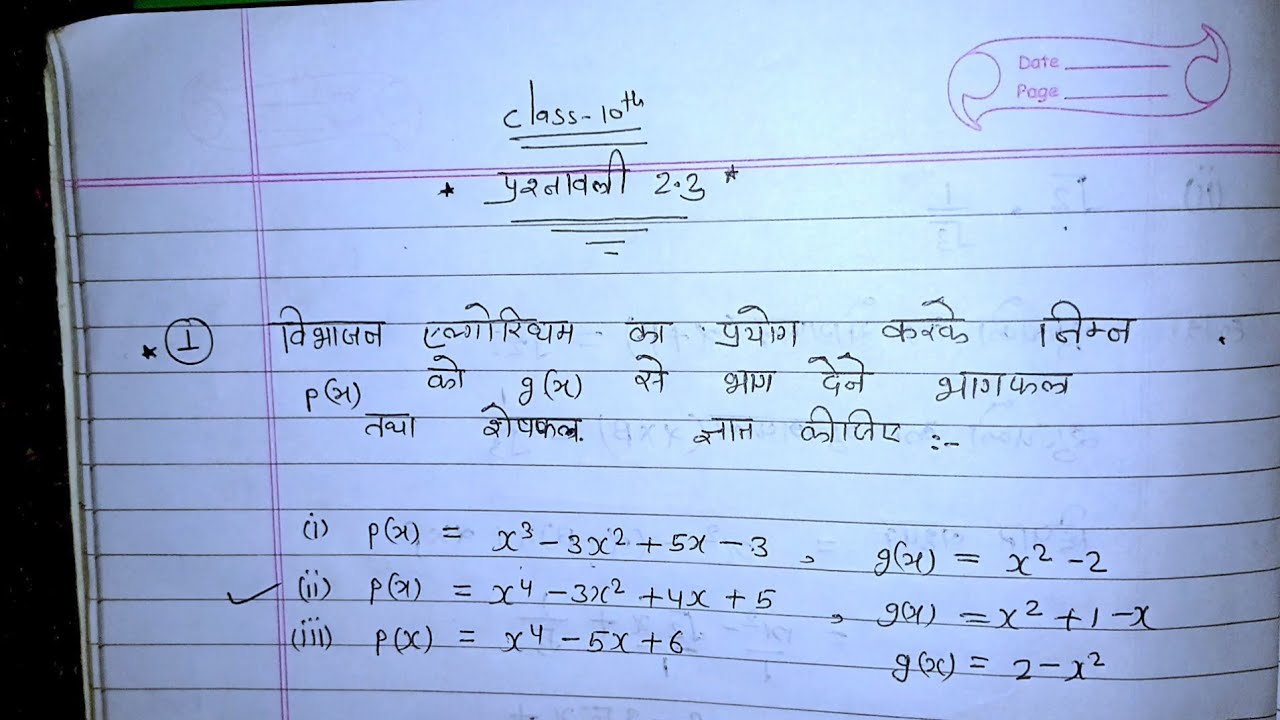 Date
Page
Class-10th
* प्रश्नावली 2.3 *
* 1 विभाजन एल्गोरिथम का प्रयोग करके निम्न
p(x) को g(x) से भाग देने भागफल
तथा शेषफल ज्ञात कीजिए :-
(i) p(x) = x³ - 3x² + 5x - 3 , g(x) = x² - 2
(ii) p(x) = x⁴ - 3x² + 4x + 5 , g(x) = x² + 1 - x
(iii) p(x) = x⁴ - 5x + 6 g(x) = 2 - x²